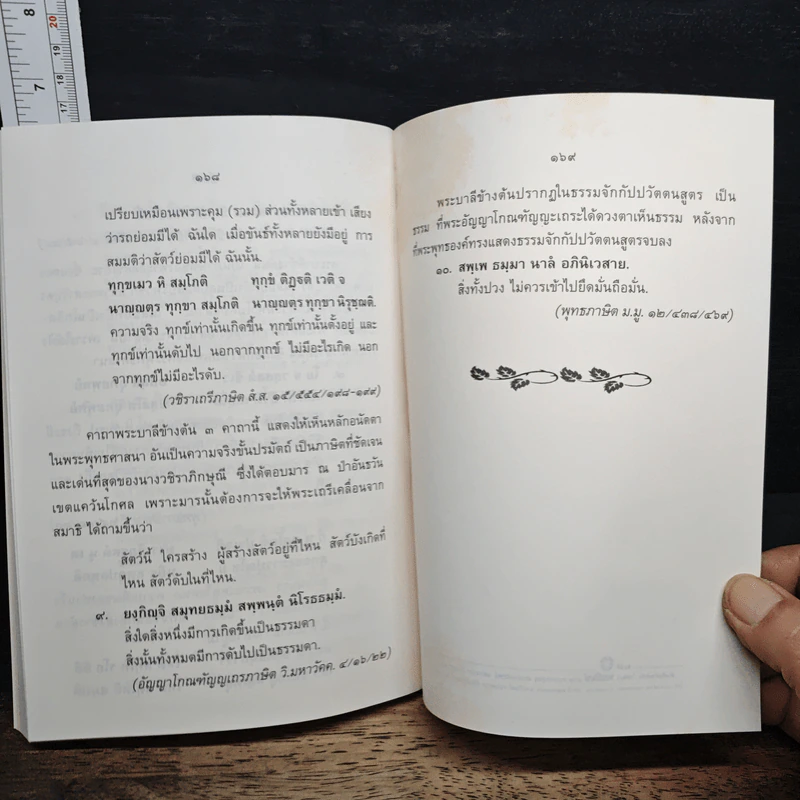 ๑๖๘
เปรียบเหมือนเพราะคุม (รวม) ส่วนทั้งหลายเข้า เสียง
ว่ารถย่อมมีได้ ฉันใด เมื่อขันธ์ทั้งหลายยังมีอยู่ การ
สมมติว่าสัตว์ย่อมมีได้ ฉันนั้น.
ทุกฺขเมว หิ สมฺโภติ ทุกฺขํ ติฏฺฐติ เวติ จ
นาญฺญตฺร ทุกฺขา สมฺโภติ นาญฺญตฺร ทุกฺขา นิรุชฺฌติ.
ความจริง ทุกข์เท่านั้นเกิดขึ้น ทุกข์เท่านั้นตั้งอยู่ และ
ทุกข์เท่านั้นดับไป นอกจากทุกข์ ไม่มีอะไรเกิด นอก
จากทุกข์ไม่มีอะไรดับ.
(วชิราเถรีภาษิต สํ.ส. ๑๕/๕๕๔/๑๙๘-๑๙๙)
คาถาพระบาลีข้างต้น ๓ คาถานี้ แสดงให้เห็นหลักอนัตตา
ในพระพุทธศาสนา อันเป็นความจริงขั้นปรมัตถ์ เป็นภาษิตที่ชัดเจน
และเด่นที่สุดของนางวชิราภิกษุณี ซึ่งได้ตอบมาร ณ ป่าอันธวัน
เขตแคว้นโกศล เพราะมารนั้นต้องการจะให้พระเถรีเคลื่อนจาก
สมาธิ ได้ถามขึ้นว่า
สัตว์นี้ ใครสร้าง ผู้สร้างสัตว์อยู่ที่ไหน สัตว์บังเกิดที่
ไหน สัตว์ดับในที่ไหน.
๙. ยงฺกิญฺจิ สมุทยธมฺมํ สพฺพนฺตํ นิโรธธมฺมํ.
สิ่งใดสิ่งหนึ่งมีการเกิดขึ้นเป็นธรรมดา
สิ่งนั้นทั้งหมดมีการดับไปเป็นธรรมดา.
(อัญญาโกณฑัญญเถรภาษิต วิ.มหาวัคค. ๔/๑๖/๒๒)
๑๖๙
พระบาลีข้างต้นปรากฏในธรรมจักกัปปวัตตนสูตร เป็น
ธรรม ที่พระอัญญาโกณฑัญญะเถระได้ดวงตาเห็นธรรม หลังจาก
ที่พระพุทธองค์ทรงแสดงธรรมจักกัปปวัตตนสูตรจบลง
๑๐. สพฺเพ ธมฺมา นาลํ อภินิเวสาย.
สิ่งทั้งปวง ไม่ควรเข้าไปยึดมั่นถือมั่น.
(พุทธภาษิต ม.มู. ๑๒/๔๓๘/๔๖๙)
8
7
20
19
18
17